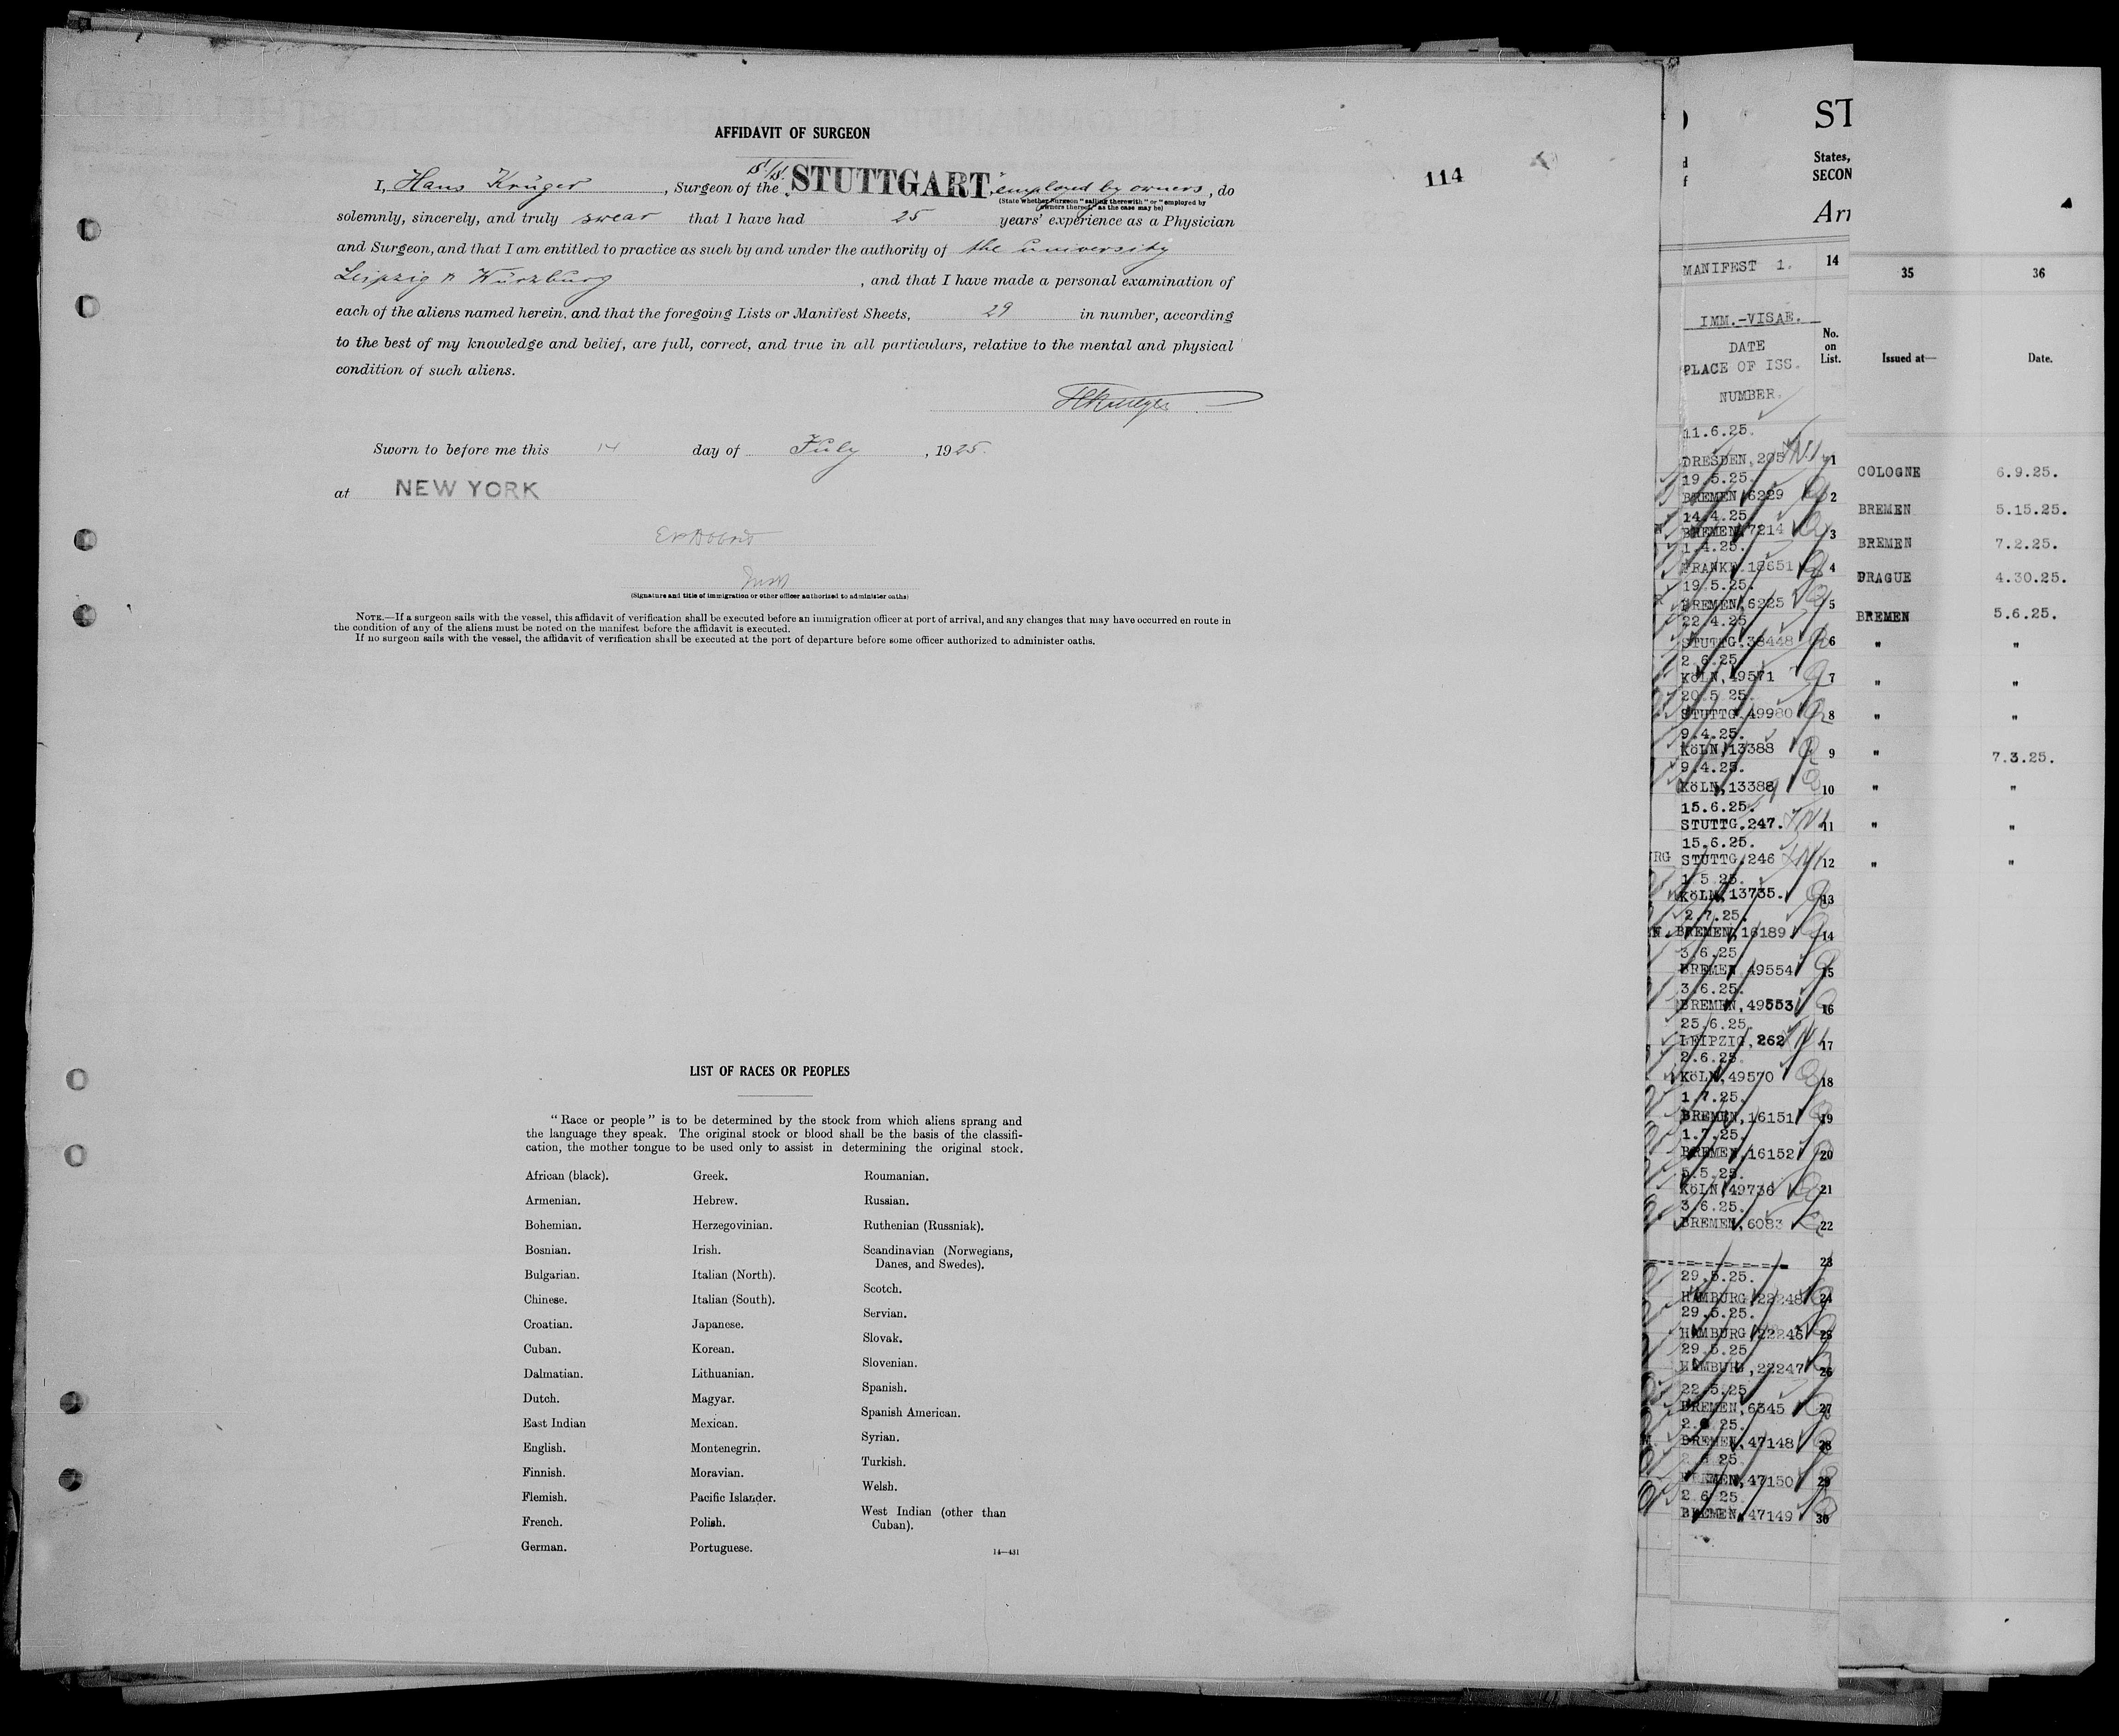 AFFIDAVIT OF SURGEON
114
I, Hans Krüger, Surgeon of the S/S. "STUTTGART," employed by owners, do
(State whether Surgeon "sailing therewith" or "employed by
owners thereof," as the case may be)
solemnly, sincerely, and truly swear that I have had 25 years' experience as a Physician
and Surgeon, and that I am entitled to practice as such by and under the authority of the university
Leipzig & Würzburg, and that I have made a personal examination of
each of the aliens named herein, and that the foregoing Lists or Manifest Sheets, 29 in number, according
to the best of my knowledge and belief, are full, correct, and true in all particulars, relative to the mental and physical
condition of such aliens.
Sworn to before me this 14 day of July, 1925.
at NEW YORK
(Signature and title of immigration or other officer authorized to administer oaths)
NOTE.—If a surgeon sails with the vessel, this affidavit of verification shall be executed before an immigration officer at port of arrival, and any changes that may have occurred en route in
the condition of any of the aliens must be noted on the manifest before the affidavit is executed.
If no surgeon sails with the vessel, the affidavit of verification shall be executed at the port of departure before some officer authorized to administer oaths.
LIST OF RACES OR PEOPLES
"Race or people" is to be determined by the stock from which aliens sprang and
the language they speak. The original stock or blood shall be the basis of the classifi-
cation, the mother tongue to be used only to assist in determining the original stock.
African (black).
Armenian.
Bohemian.
Bosnian.
Bulgarian.
Chinese.
Croatian.
Cuban.
Dalmatian.
Dutch.
East Indian
English.
Finnish.
Flemish.
French.
German.
Greek.
Hebrew.
Herzegovinian.
Irish.
Italian (North).
Italian (South).
Japanese.
Korean.
Lithuanian.
Magyar.
Mexican.
Montenegrin.
Moravian.
Pacific Islander.
Polish.
Portuguese.
Roumanian.
Russian.
Ruthenian (Russniak).
Scandinavian (Norwegians,
Danes, and Swedes).
Scotch.
Servian.
Slovak.
Slovenian.
Spanish.
Spanish American.
Syrian.
Turkish.
Welsh.
West Indian (other than
Cuban).
14—431
ST
States,
SECON
Arr
MANIFEST 1.
14
IMM.-VISAE.
DATE
PLACE OF ISS.
NUMBER.
No.
on
List.
11.6.25.
DRESDEN, 205 1
19.5.25.
BREMEN, 6229 2
14.4.25.
BREMEN, 7214 3
1.4.25.
FRANKF. 18651 4
19.5.25.
BREMEN, 6225 5
22.4.25.
STUTTG. 38448 6
2.6.25.
KÖLN, 49571 7
20.5.25.
STUTTG. 49980 8
9.4.25.
KÖLN, 13388 9
9.4.25.
KÖLN, 13388 10
15.6.25.
STUTTG. 247. 11
15.6.25.
RG STUTTG. 246 12
1.5.25.
KÖLN, 13735. 13
2.7.25.
N. BREMEN, 16189 14
3.6.25.
BREMEN 49554 15
3.6.25.
BREMEN, 49553 16
25.6.25.
LEIPZIG, 262 17
2.6.25.
KÖLN, 49570 18
1.7.25.
BREMEN, 16151 19
1.7.25.
BREMEN, 16152 20
5.5.25.
KÖLN, 49736 21
3.6.25.
BREMEN, 6083 22
23
29.5.25.
HAMBURG 22248 24
29.5.25.
HAMBURG 22246 25
29.5.25.
HAMBURG, 22247 26
22.5.25.
BREMEN, 6345 27
BREMEN, 47148 28
BREMEN, 47150 29
2.6.25.
BREMEN, 47149 30
35 36
Issued at— Date.
COLOGNE 6.9.25.
BREMEN 5.15.25.
BREMEN 7.2.25.
PRAGUE 4.30.25.
BREMEN 5.6.25.
" "
" "
" "
" 7.3.25.
" "
" "
" "